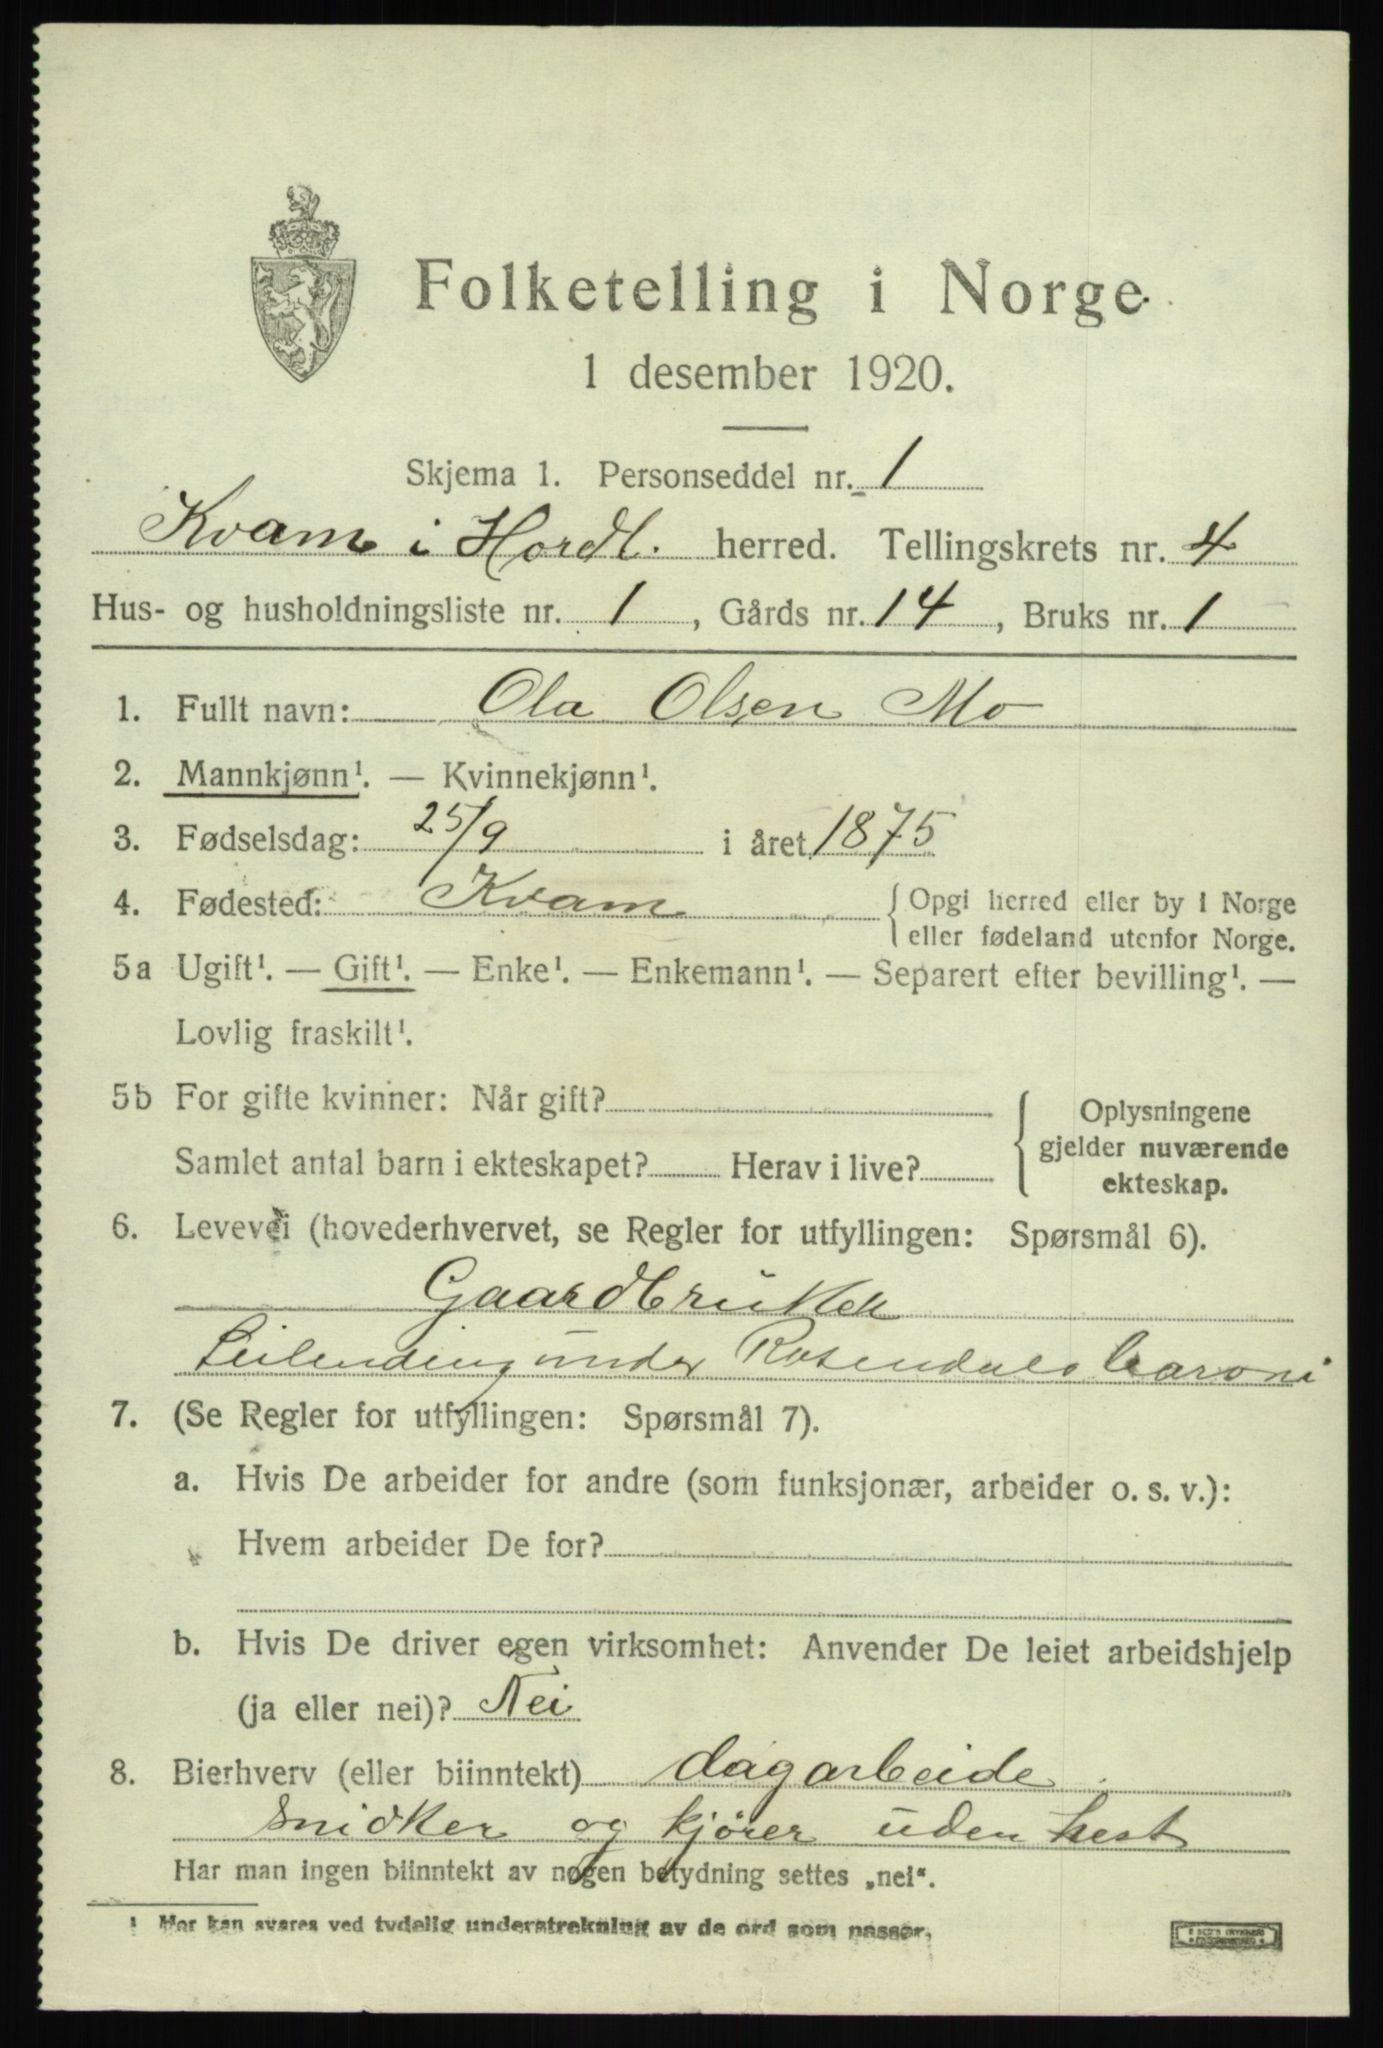 Folketelling i Norge.
1 desember 1920.
Skjema 1. Personseddel nr. 1
Kvam i Hordl. herred. Tellingskrets nr. 4
Hus- og husholdningsliste nr. 1, Gårds nr. 14, Bruks nr. 1
1. Fullt navn: Ola Olsen Mo
2. Mannkjønn¹. — Kvinnekjønn¹.
3. Fødselsdag: 25/9 i året 1875
4. Fødested: Kvam { Opgi herred eller by i Norge
eller fødeland utenfor Norge.
5a Ugift¹. — Gift¹. — Enke¹. — Enkemann¹. — Separert efter bevilling¹. —
Lovlig fraskilt¹.
5b For gifte kvinner: Når gift? { Oplysningene
gjelder nuværende
ekteskap.
Samlet antal barn i ekteskapet? Herav i live?
6. Levevei (hovederhvervet, se Regler for utfyllingen: Spørsmål 6).
Gaardbruker
Leilending under Rosendals baroni
7. (Se Regler for utfyllingen: Spørsmål 7).
a. Hvis De arbeider for andre (som funksjonær, arbeider o. s. v.):
Hvem arbeider De for?
b. Hvis De driver egen virksomhet: Anvender De leiet arbeidshjelp
(ja eller nei)? Nei
8. Bierhverv (eller biinntekt) dagarbeide
snidker og kjører uden hest
Har man ingen biinntekt av nogen betydning settes „nei“.
¹ Her kan svares ved tydelig understrekning av de ord som passer.